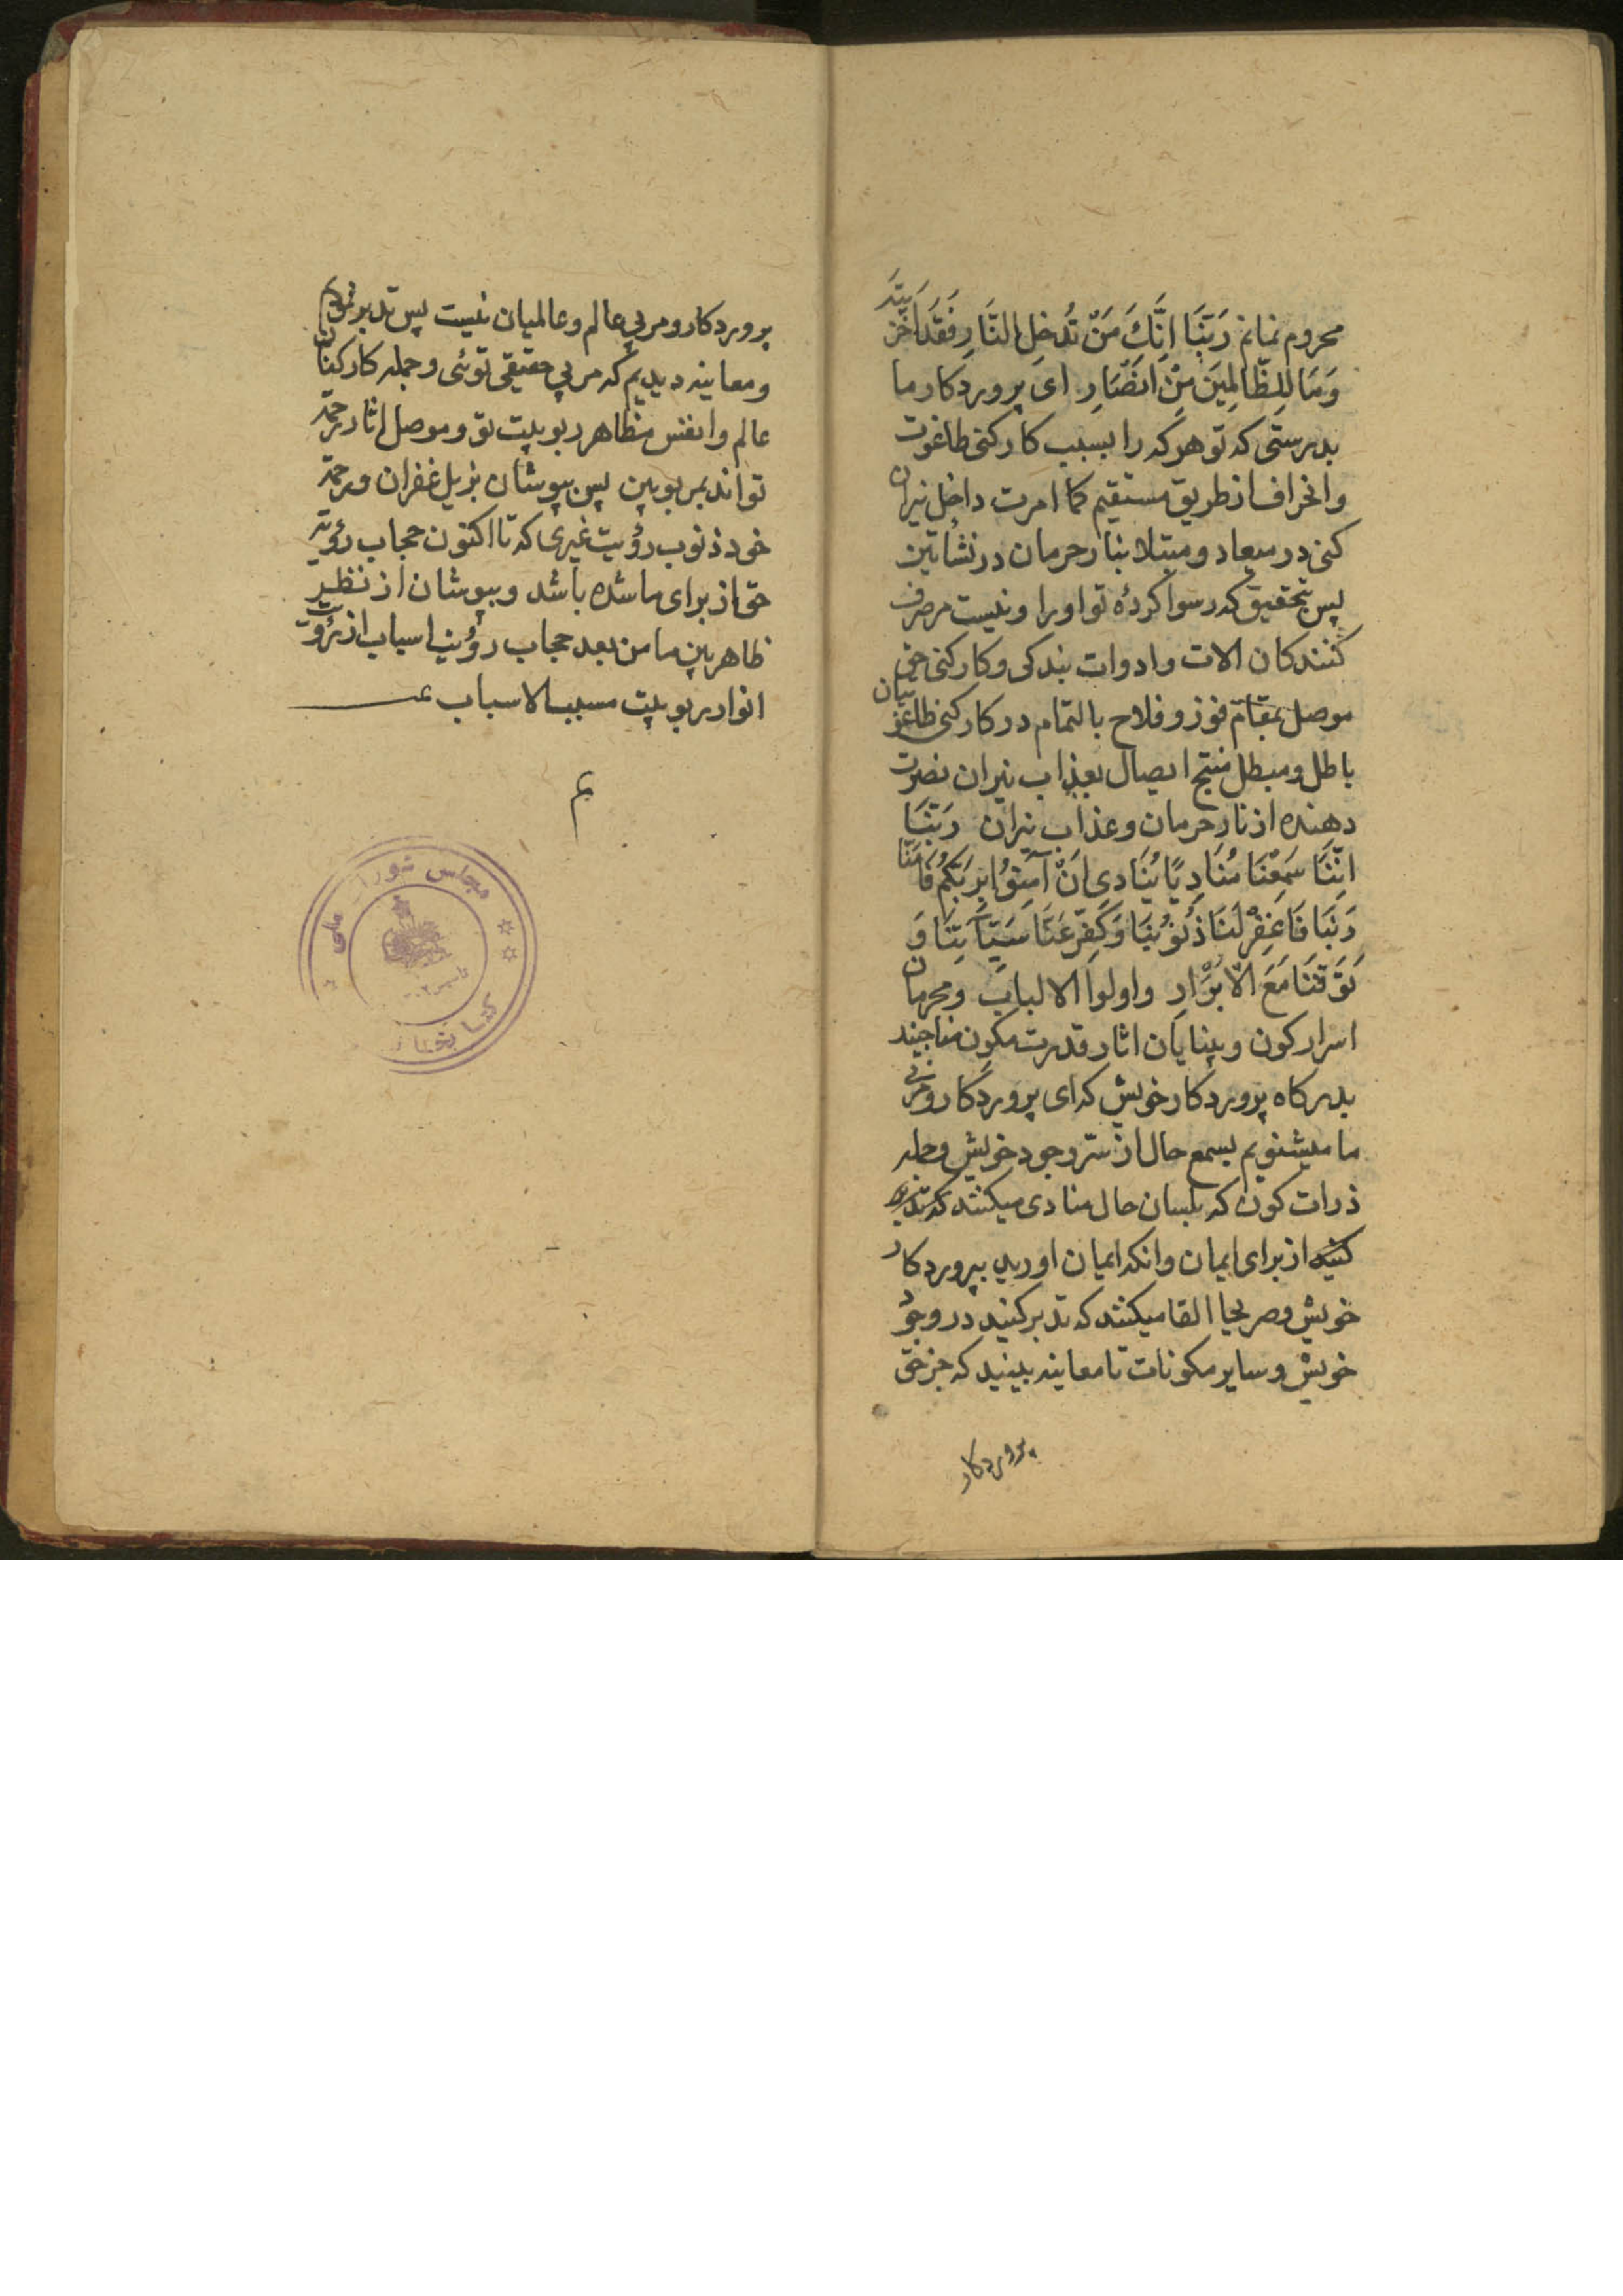 محروم نمانم رَبَّنَا اِنَّكَ مَنْ تُدْخِلِ النَّارَ فَقَدْ اَخْزَيْتَهُ
وَمَا لِلظَّالِمِينَ مِنْ اَنْصَارٍ ای پروردکار ما
بدرستی که تو هرکه را بسبب کارکنی طاغوت
وانحراف از طریق مستقیم کما امرت داخل نیران
کنی در میعاد و مبتلا بنار حرمان در نشأتین
پس بتحقیق که رسوا کردهٔ تو اورا ونیست مر صرف
کنندکان الات وادوات بندکی وکارکنی حق
موصل بمقام فوز وفلاح بالتمام در کارکنی طاغوتیان
باطل ومبطل منتج ایصال بعذاب نیران نصرت
دهنده از نار حرمان وعذاب نیران رَبَّنَا
اِنَّنَا سَمِعْنَا مُنَادِيًا يُنَادِی اَنْ آمِنُوا بِرَبِّكُمْ فَآمَنَّا
رَبَّنَا فَاغْفِرْ لَنَا ذُنُوبَنَا وَكَفِّرْ عَنَّا سَيِّآتِنَا وَ
تَوَفَّنَا مَعَ الْاَبْرَارِ واولوا الالباب ومحرمان
اسرار کون وبینایان اثار قدرت مکون مناجیند
بدرکاه پروردکار خویش که ای پروردکار ومربی
ما میشنویم بسمع حال از سرّ وجود خویش وجمله
ذرات کون که بلسان حال منادی میکنند که تدبر
کنید از برای ایمان وانکه ایمان اورید بپروردکار
خویش وصریحا القا میکنند که تدبر کنید در وجود
خویش وسایر مکونات تا معاینه ببینید که جز حق
پروردکار
پروردکار ومربی عالم وعالمیان نیست پس تدبر نمودیم
ومعاینه دیدیم که مربی حقیقی توئی وجمله کارکنان
عالم وانفس مظاهر ربوبیت تو وموصل اثار رحمة
تواند بمربوبین پس بپوشان بذیل غفران ورحمة
خود ذنوب رؤیت غیری که تا اکنون حجاب رؤیة
حق از برای ما شده باشد وبپوشان از نظر
ظاهربین ما من بعد حجاب رؤیت اسباب از رؤیت
انوار ربوبیت مسبب الاسباب
تم
مجلس شورای ملی
کتابخانه